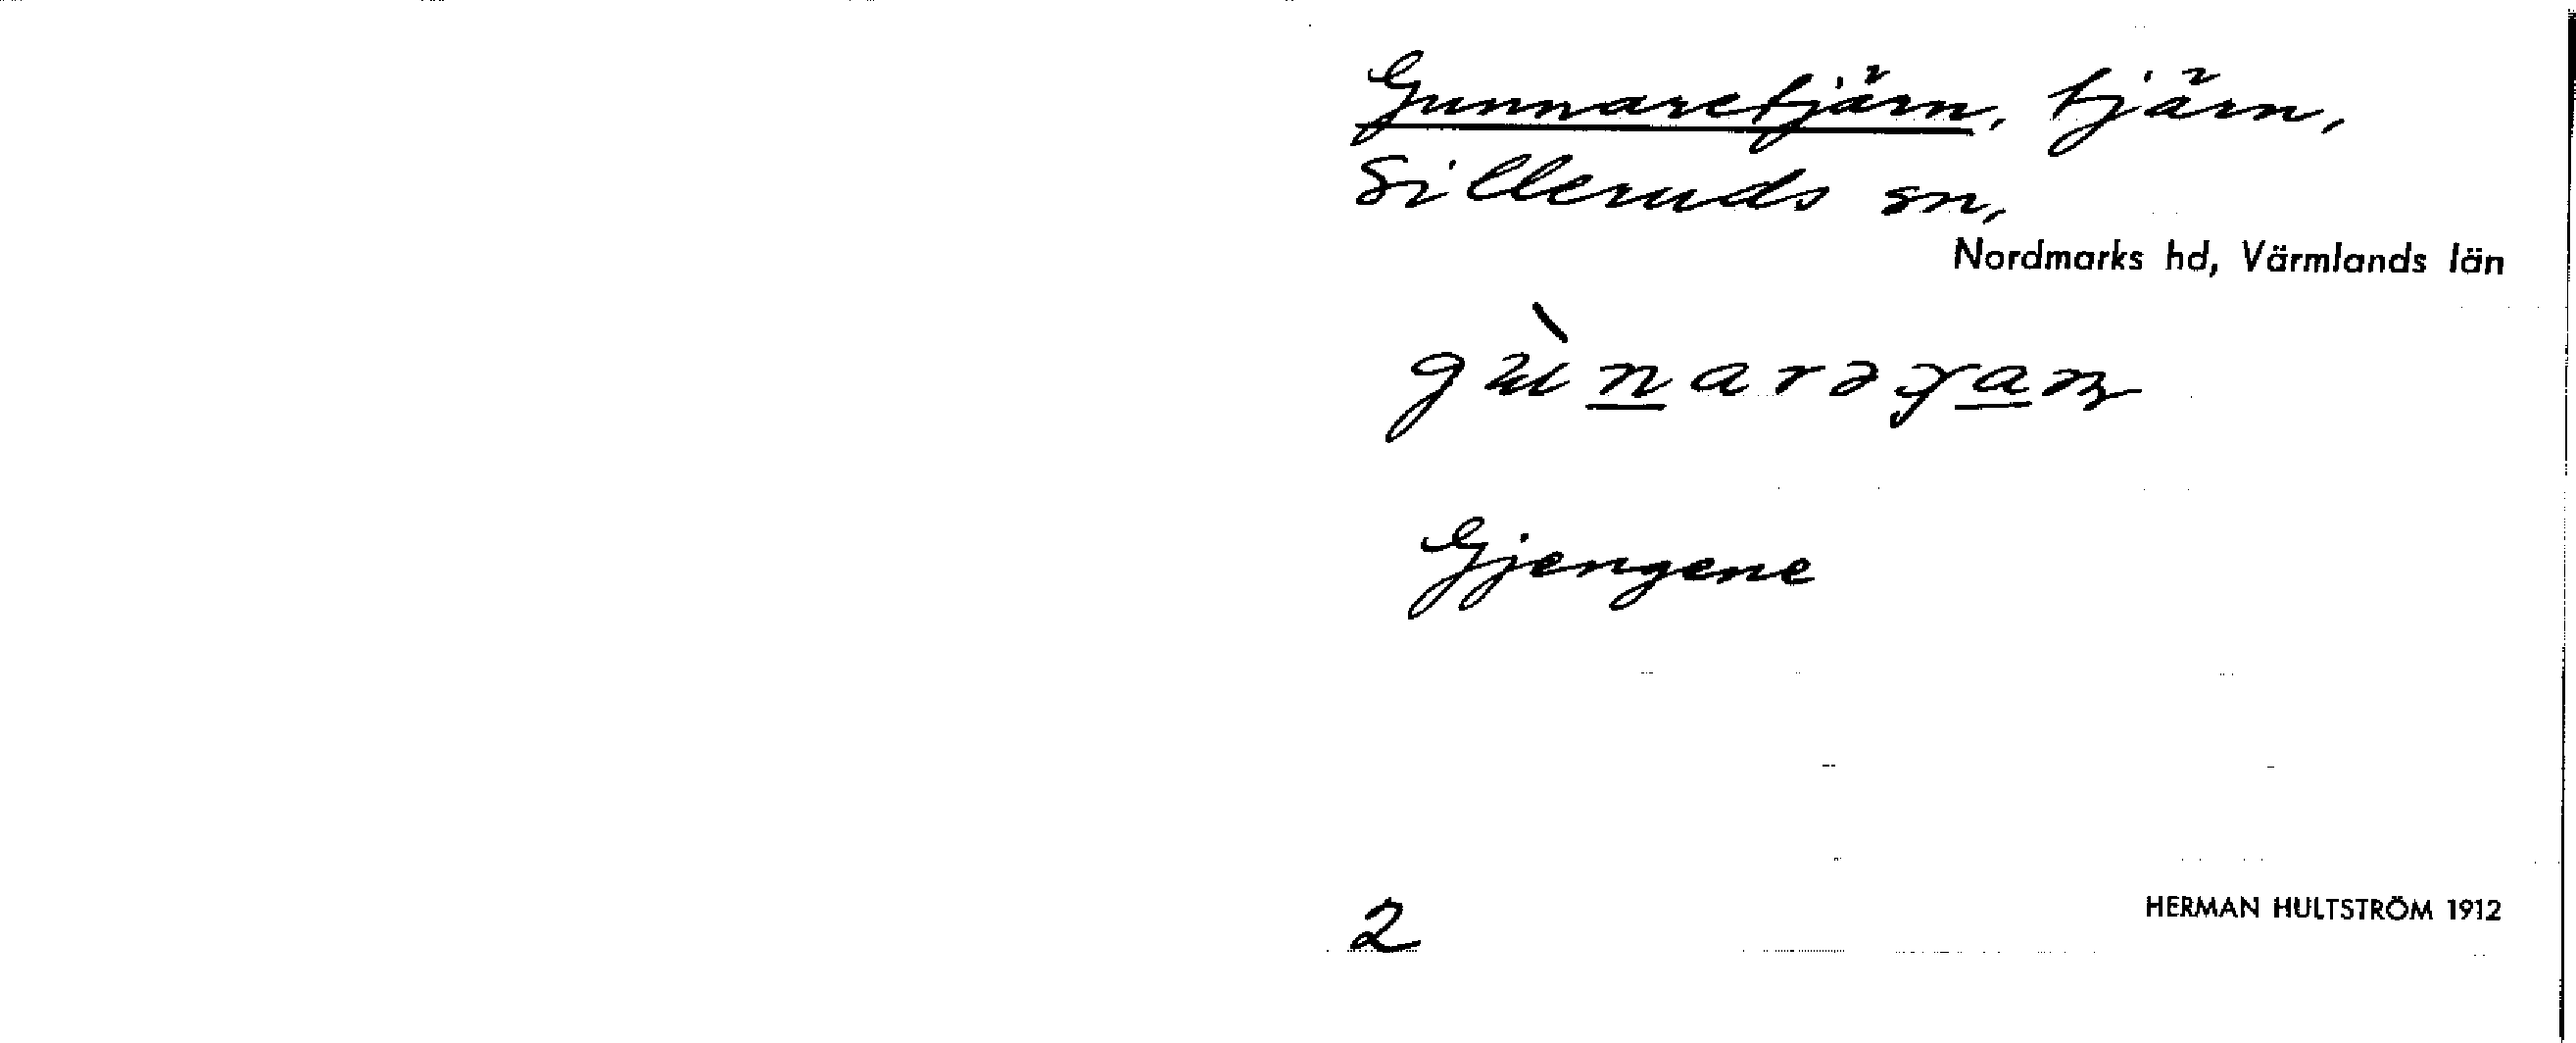 Gunnaretjärn, tjärn,
Silleruds sn,
Nordmarks hd, Värmlands län
Gjengene
2
HERMAN HULTSTRÖM 1912